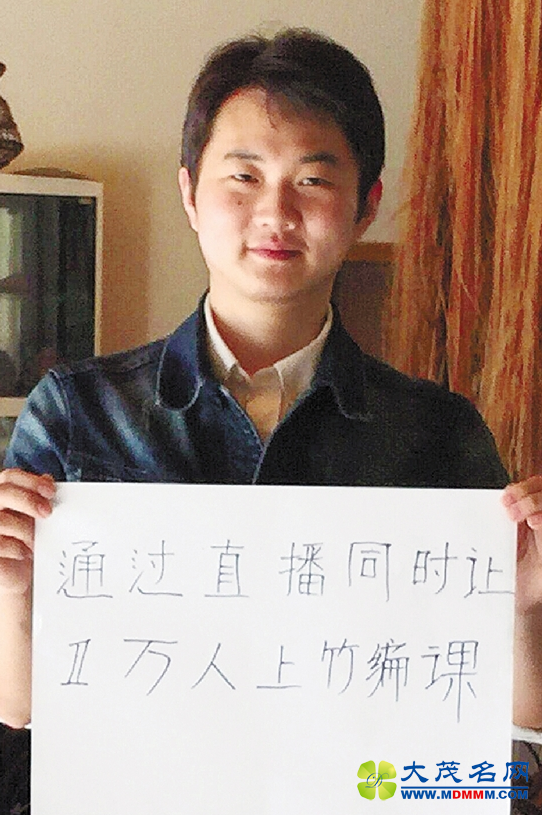 通过直播同时让
1万人上竹编课
大茂名网
WWW.MDMMM.COM